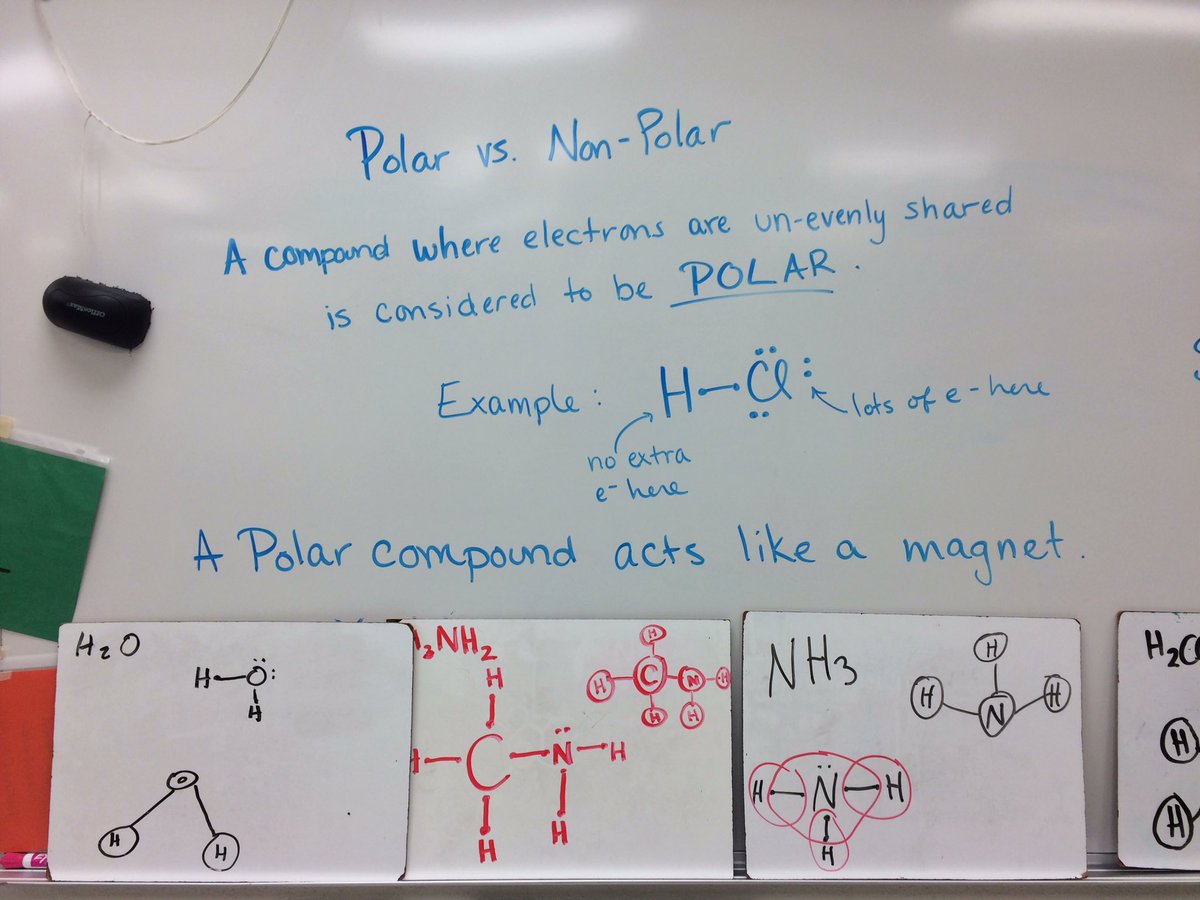 Polar vs. Non-Polar
A compound where electrons are un-evenly shared
is considered to be POLAR.
Example: H–Cl lots of e- here
no extra
e- here
A Polar compound acts like a magnet.
OfficeMax
H2O
H O
H
O
H H
3NH2
H
H C N H
H H
H
H C N H
H H
NH3
H
H H
N
H N H
H
H2C
H
H